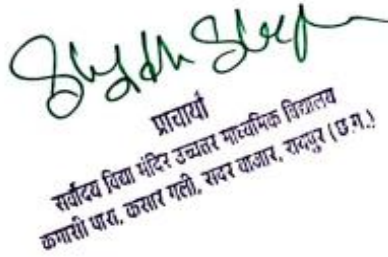 प्राचार्या
सर्वोदय विद्या मंदिर उच्चतर माध्यमिक विद्यालय
कंगासी पारा, कसार गली, सदर बाजार, रायपुर (छ.ग.)